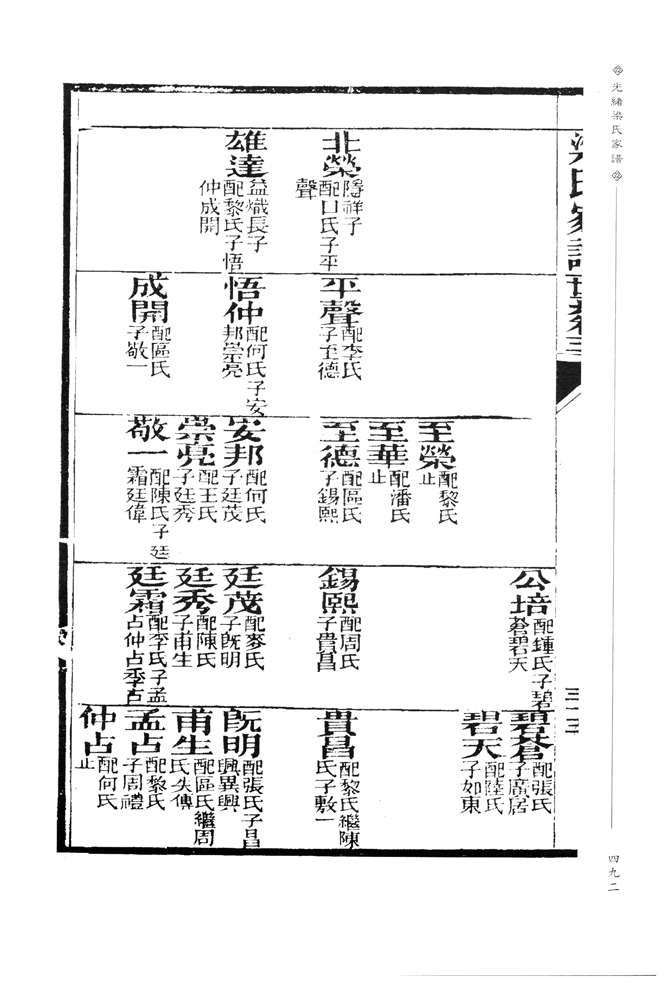 光緒梁氏家譜
四九二
梁氏家譜世系卷三
北榮
祥子
配口氏子平
聲
雄達
益熾長子
配黎氏子悟
仲成開
平聲
配李氏
子至德
悟仲
配何氏子安
邦崇亮
成開
配區氏
子敬一
至榮
配黎氏
止
至華
配潘氏
止
至德
配區氏
子錫熙
安邦
配何氏
子廷茂
崇亮
配王氏
子廷秀
敬一
配陳氏子廷
霜廷偉
公培
配鍾氏子碧
蒼碧天
錫熙
配周氏
子貴昌
廷茂
配麥氏
子旣明
廷秀
配陳氏
子甫生
廷霜
配李氏子孟
占仲占季占
碧蒼
配張氏
子廣居
碧天
配陸氏
子如東
貴昌
配黎氏繼陳
氏子敷一
旣明
配張氏子昌
興異興
甫生
配區氏繼周
氏失傳
孟占
配黎氏
子周禮
仲占
配何氏
止